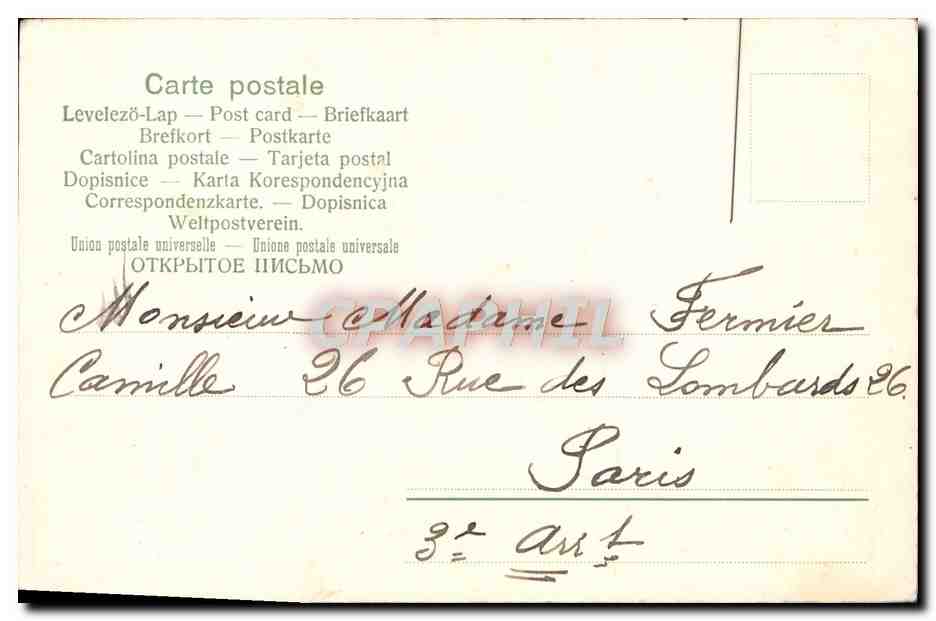 Carte postale
Levelezö-Lap — Post card — Briefkaart
Brefkort — Postkarte
Cartolina postale — Tarjeta postal
Dopisnice — Karta Korespondencyjna
Correspondenzkarte. — Dopisnica
Weltpostverein.
Union postale universelle — Unione postale universale
ОТКРЫТОЕ ПИСЬМО
CPAPHIL
Monsieur Madame Fermier
Camille 26 Rue des Lombards 26.
Paris
3e Arrt